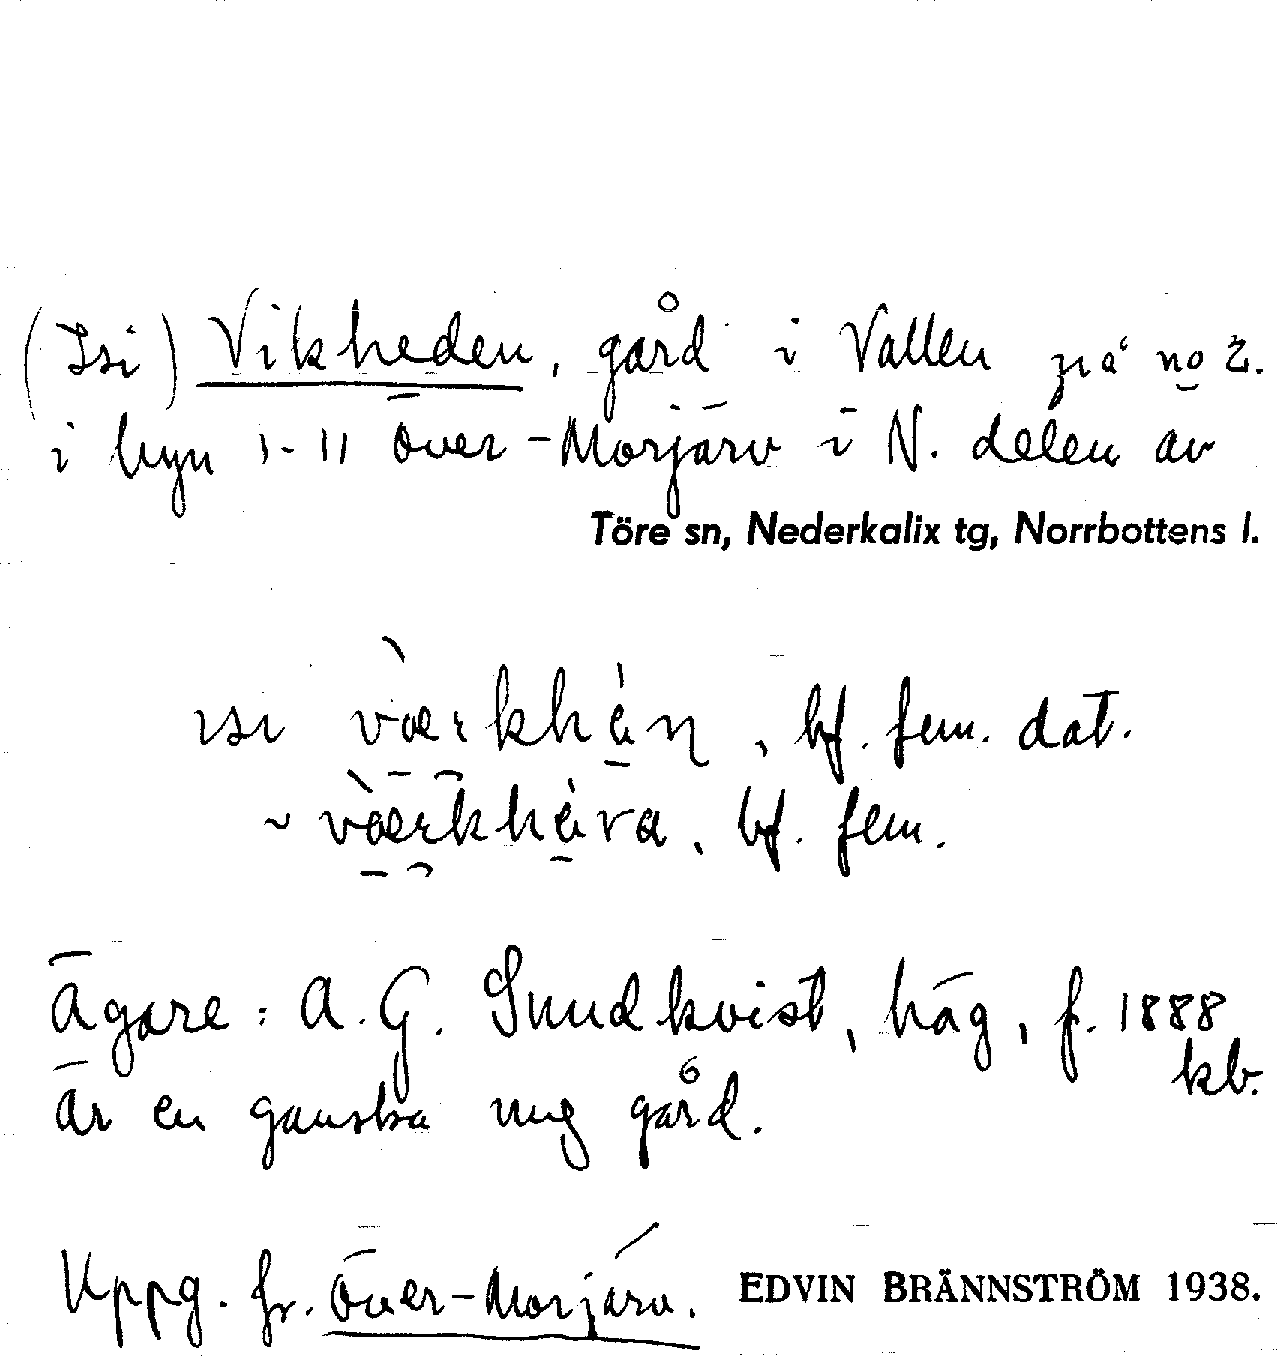 (Isi) Vikheden, gård i Vallen på no 2.
i byn 1-11 Över-Morjärv i N. delen av
Töre sn, Nederkalix tg, Norrbottens l.
ısı bf. fem. dat.
~ bf. fem.
Ägare: A. G. Sundkvist, häg, f. 1888
kb.
Är en ganska ung gård.
Uppg. fr. Över-Morjärv. EDVIN BRÄNNSTRÖM 1938.